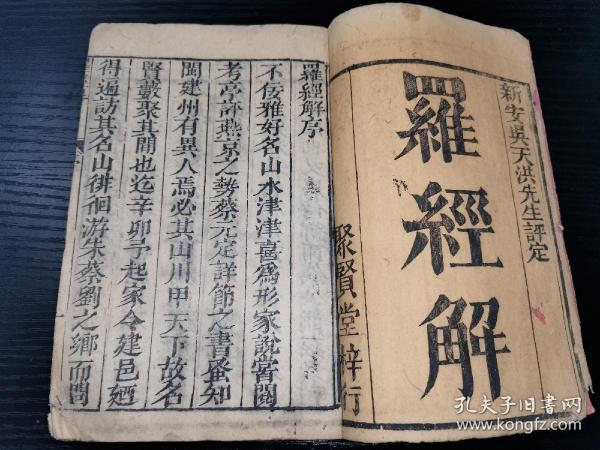 新安吳天洪先生評定
羅經解
聚賢堂梓行
羅經解序
不佞雅好名山水津津喜為形家說嘗閱
考亭訴燕京之勢蔡元定詳節之書蚤知
閩建州有異人焉必其山川甲天下故名
賢藪聚其間也迄辛卯予起家令建邑廼
得遍訪其名山徘徊游朱蔡劉之鄉而問
孔夫子旧书网
www.kongfz.com